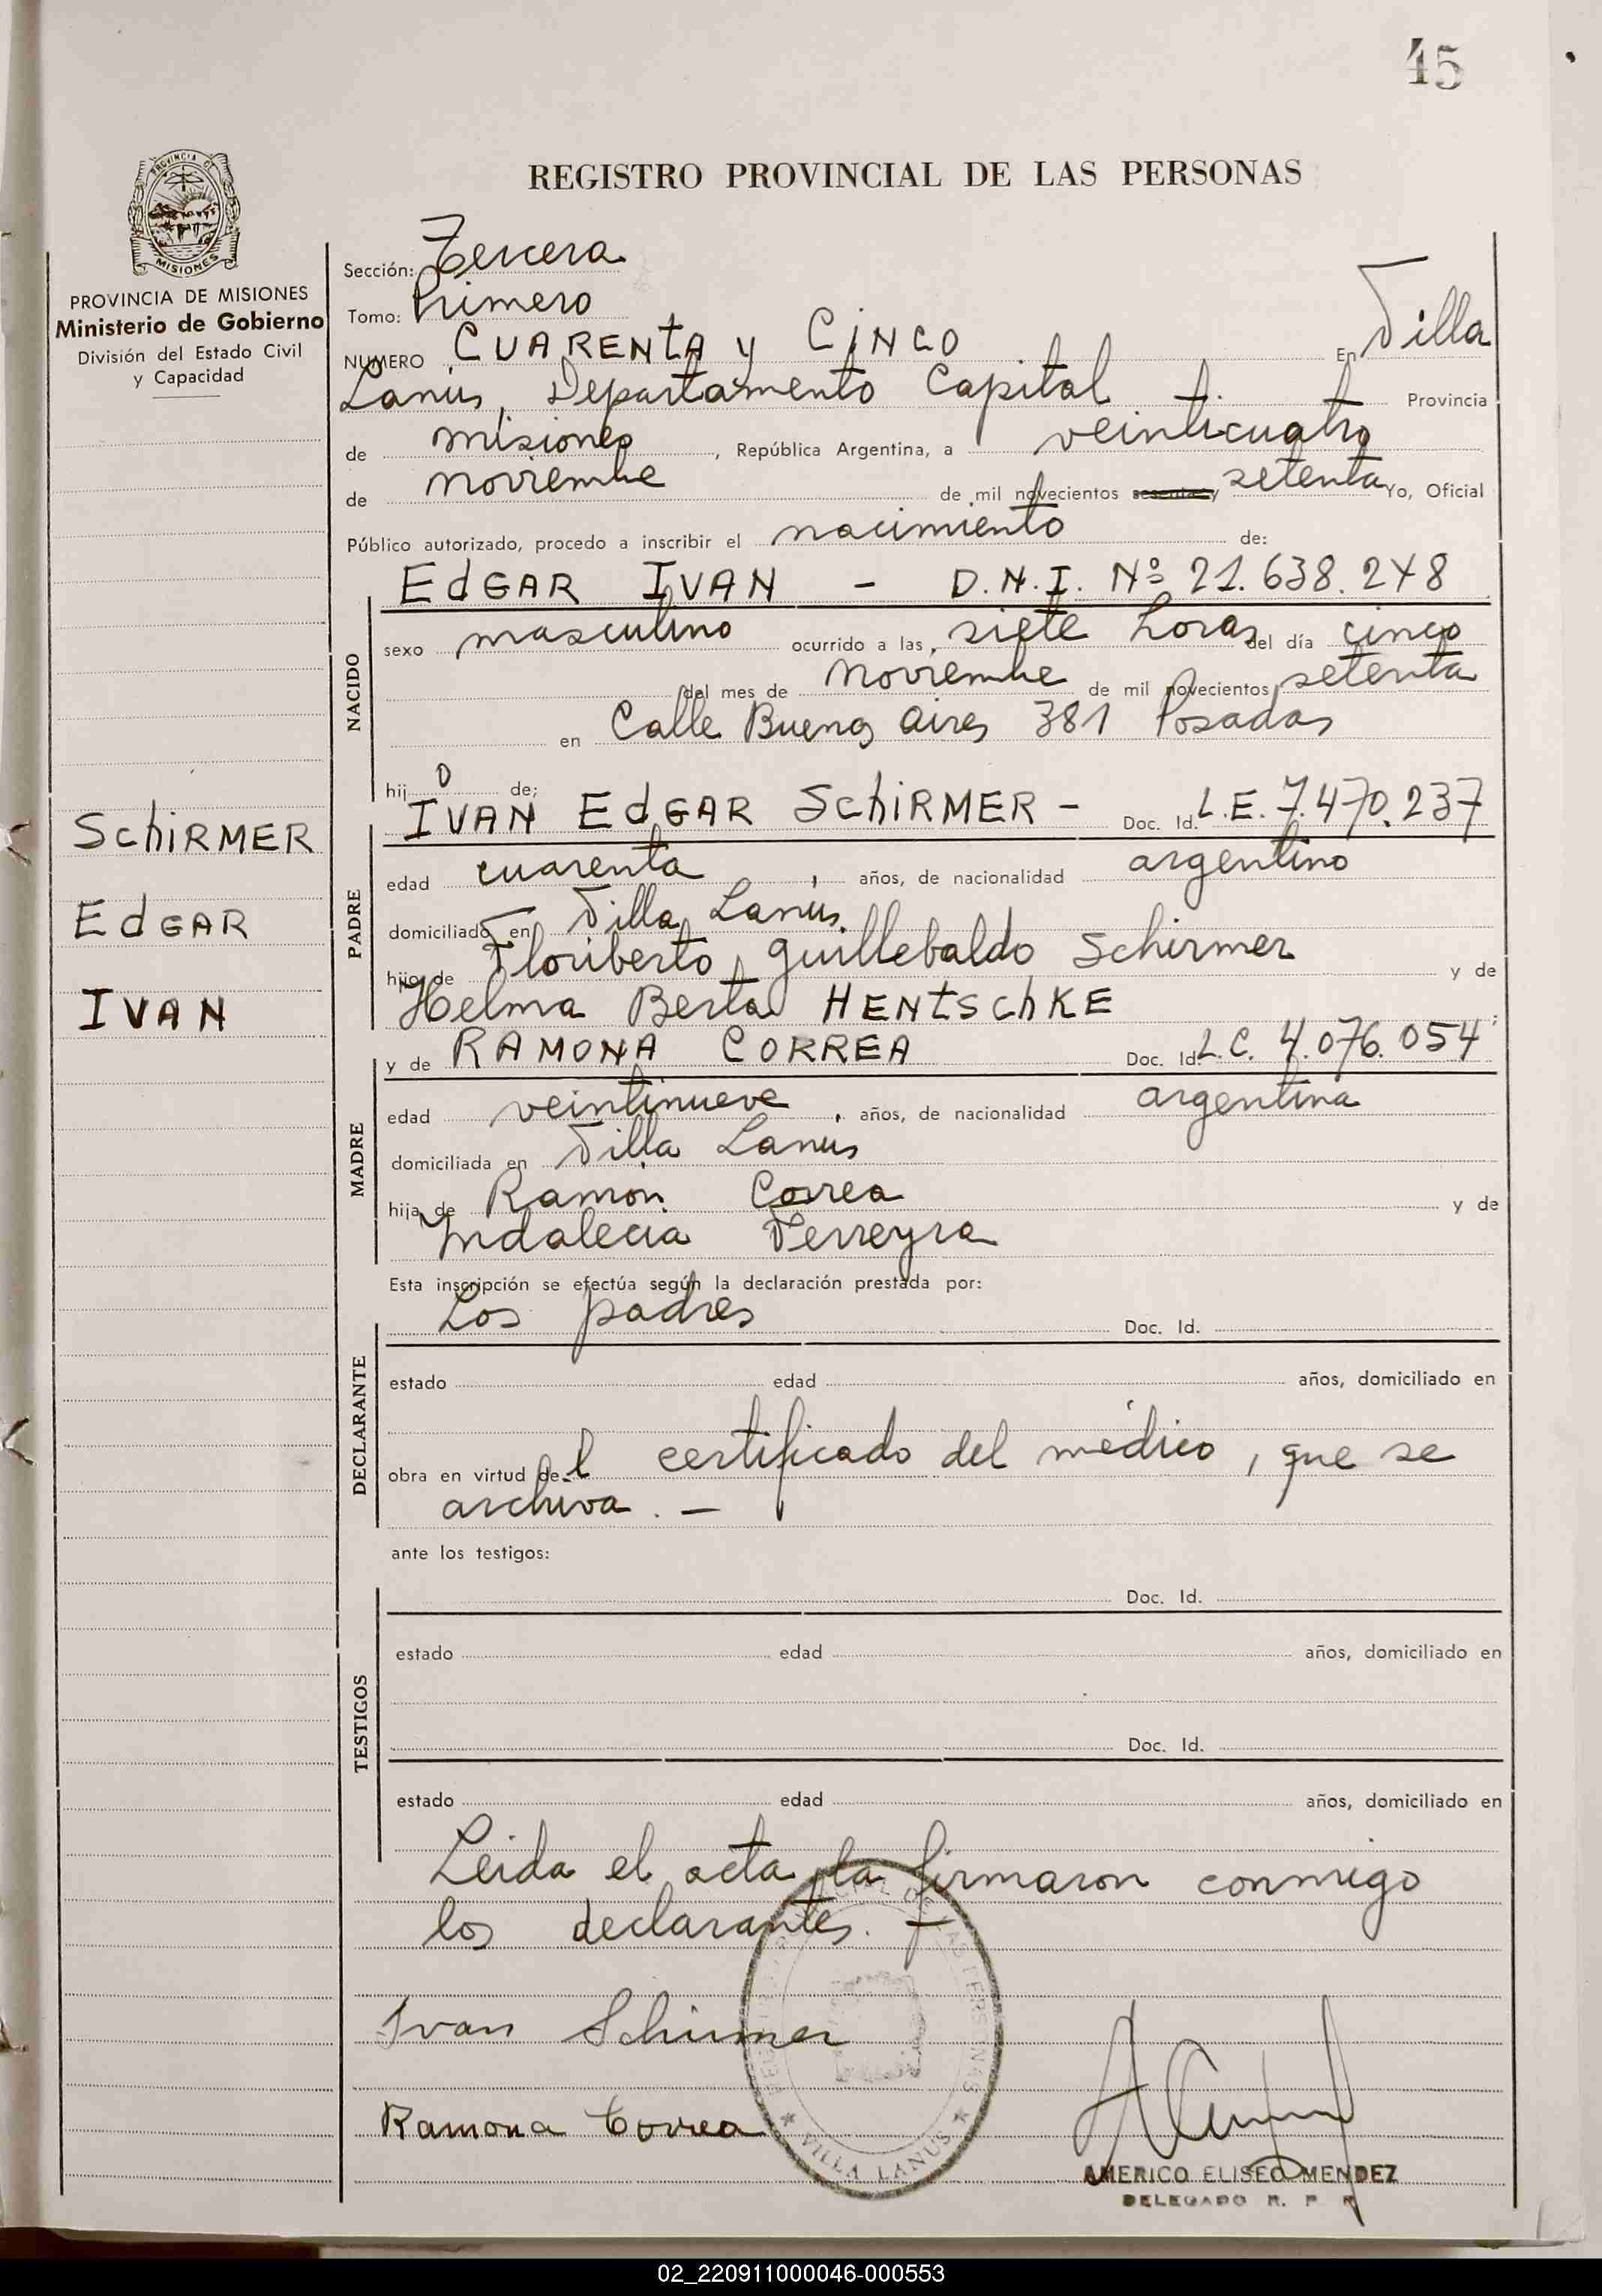 45
PROVINCIA DE
MISIONES
PROVINCIA DE MISIONES
Ministerio de Gobierno
División del Estado Civil
y Capacidad
SchiRMER
EdGAR
IVAN
REGISTRO PROVINCIAL DE LAS PERSONAS
Sección: Tercera
Tomo: Primero
NUMERO CUARENTA y CINCO En Villa
Lanús, Departamento Capital Provincia
de misiones, República Argentina, a veinticuatro
de noviembre de mil novecientos sesenta y setenta Yo, Oficial
Público autorizado, procedo a inscribir el nacimiento de:
EdGAR IVAN - D.N.I. Nº 21.638.248
NACIDO
sexo masculino ocurrido a las siete horas del día cinco
del mes de noviembre de mil novecientos setenta
en Calle Buenos Aires 381 Posadas
hijo de;
IVAN EdGAR SchiRMER - Doc. Id. L.E. 7.470.237
PADRE
edad cuarenta, años, de nacionalidad argentino
domiciliado en Villa Lanus
hijo de Floriberto Guillebaldo Schirmer y de
Helma Berta HENtSchKE
y de RAMONA CORREA Doc. Id. L.C. 4.076.054
MADRE
edad veintinueve, años, de nacionalidad argentina
domiciliada en Villa Lanus
hija de Ramón Correa y de
Indalecia Ferreyra
Esta inscripción se efectúa según la declaración prestada por:
Los padres Doc. Id.
DECLARANTE
estado edad años, domiciliado en
obra en virtud del certificado del médico, que se
archiva. -
ante los testigos:
Doc. Id.
TESTIGOS
estado edad años, domiciliado en
Doc. Id.
estado edad años, domiciliado en
Leida el acta la firmaron conmigo
los declarantes. -
Ivan Schirmer
Ramona Correa
VILLA LANUS
AMERICO ELISEO MENDEZ
DELEGADO R. P.
02_220911000046-000553